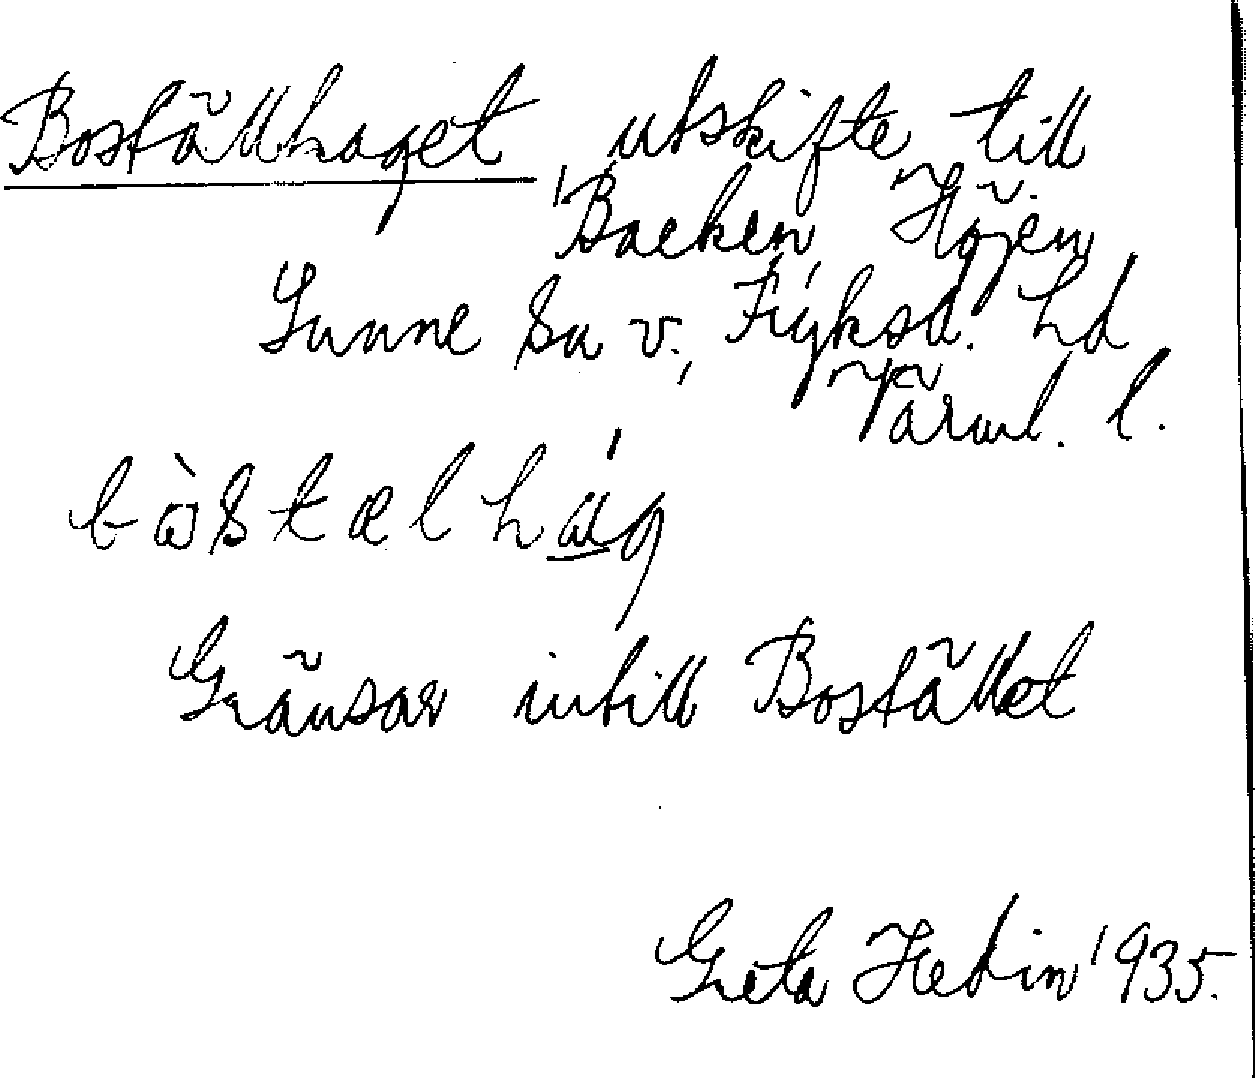 Boställhaget, utskifte till
Backen, Höjen,
Sunne sn v., Fryksd. hd
Värml. l.
bòstælhág
Gränsar intill Bostället
Greta Hedin 1935.